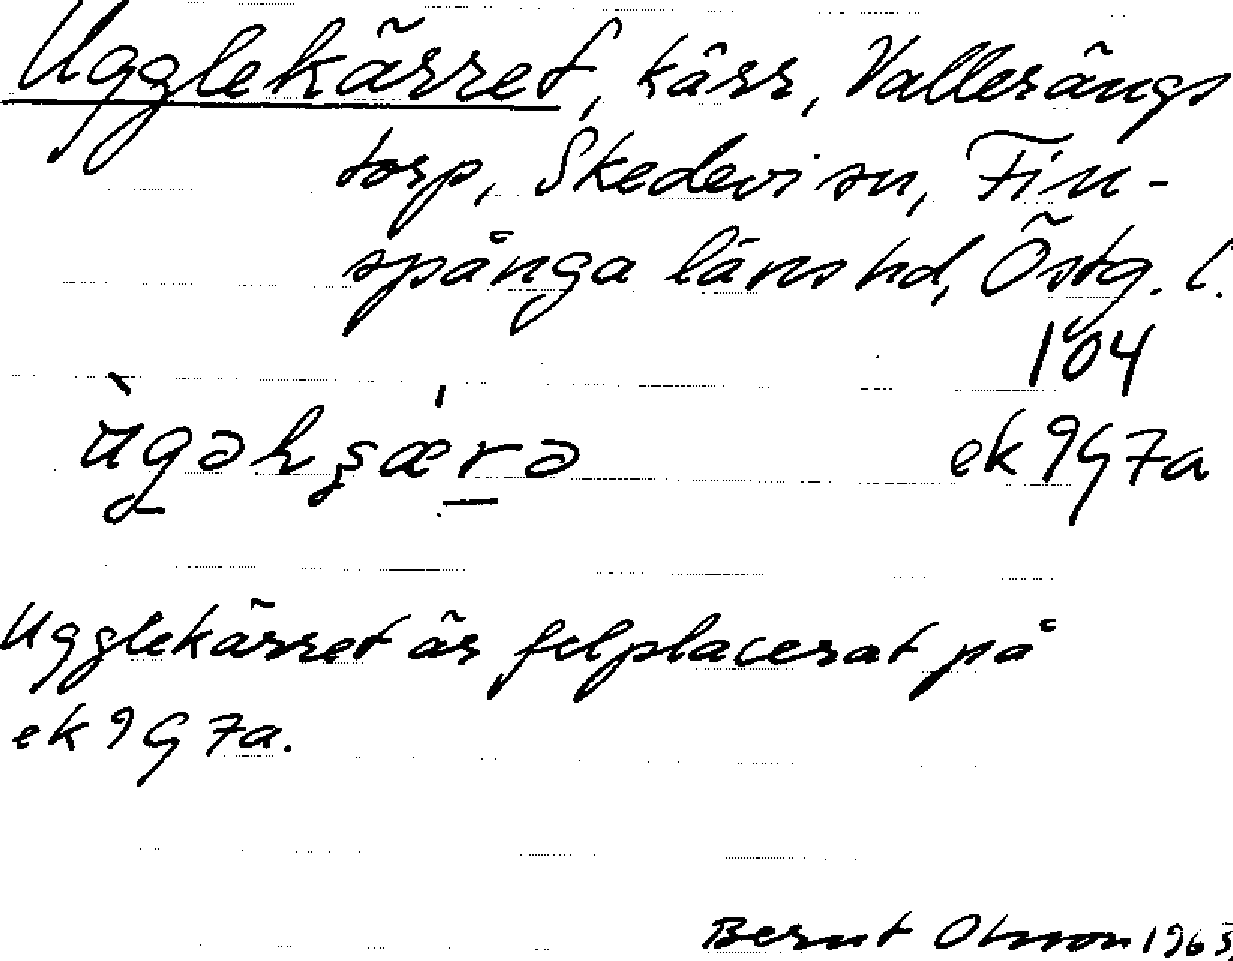 Ugglekärret, kärr, Vallerängs
torp, Skedevi sn, Fin-
spånga läns hd, Östg. l.
104
ùgəlɩşǽrə ek 9G7a
Ugglekärret är felplacerat på
ek 9G 7a.
Bernt Olsson 1965